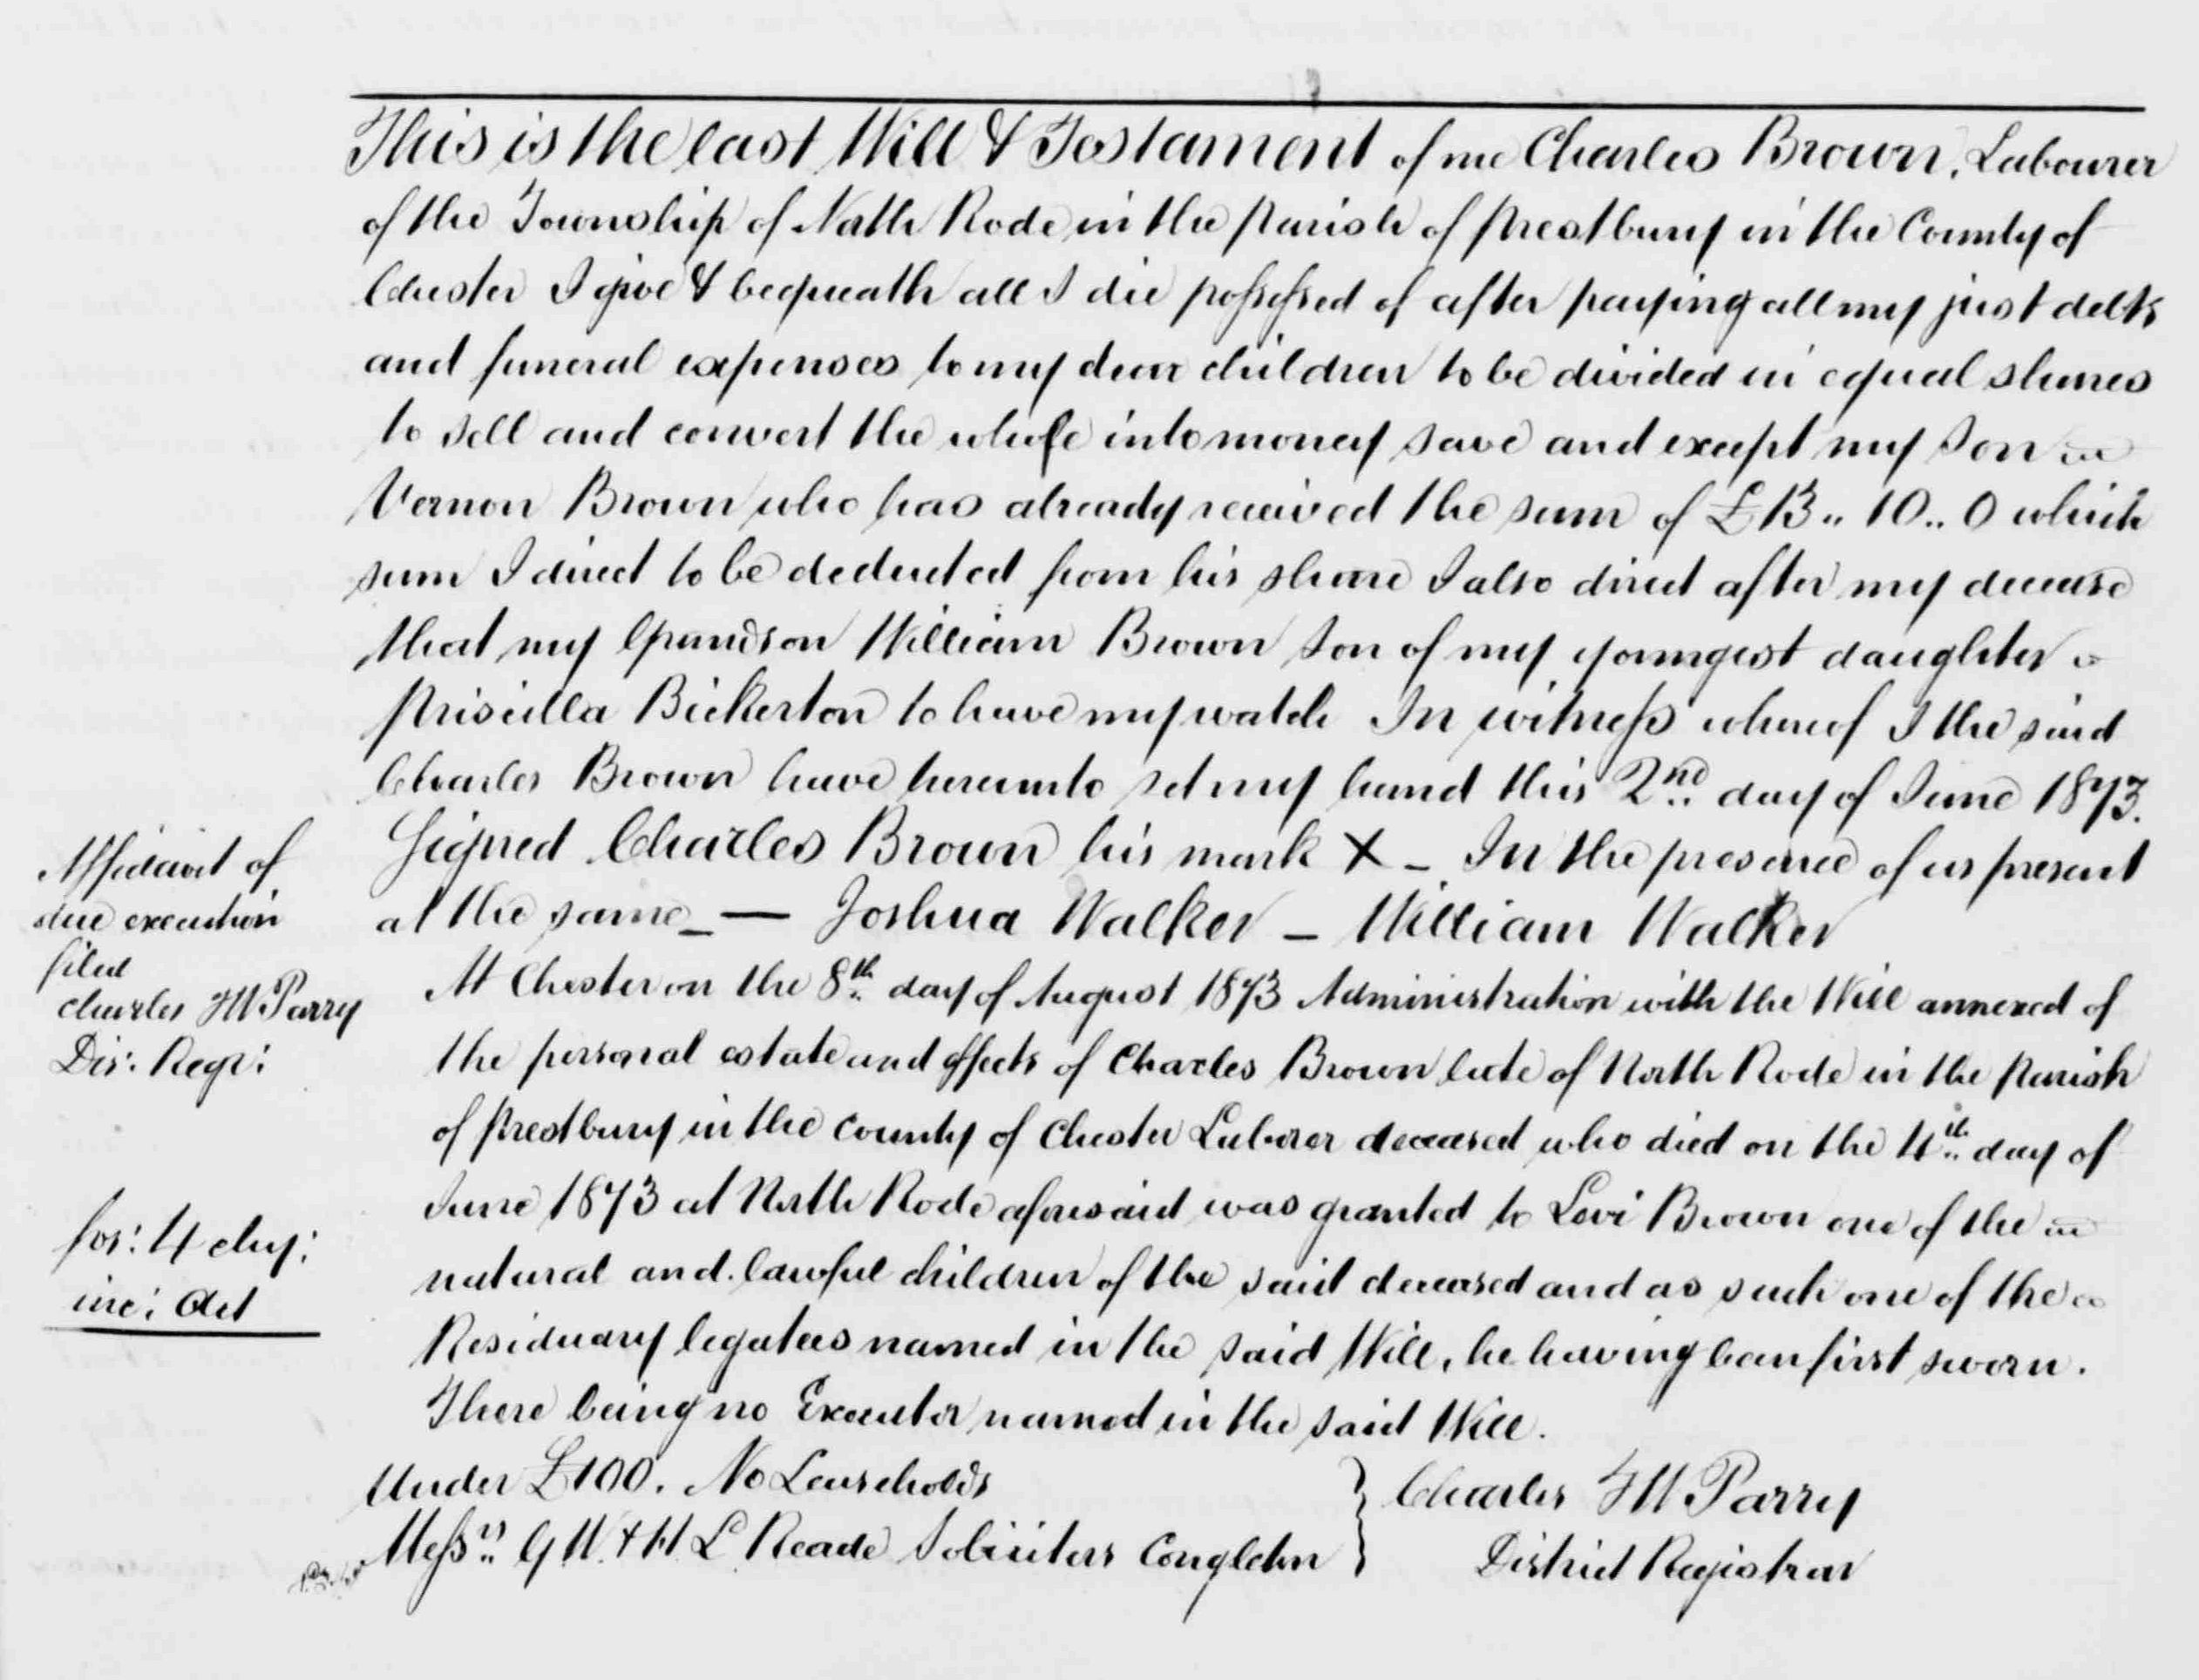 This is the last Will & Testament of me Charles Brown, Labourer
of the Township of North Rode in the Parish of Prestbury in the County of
Chester I give & bequeath all I die possessed of after paying all my just debts
and funeral expenses to my dear children to be divided in equal shares
to sell and convert the whole into money save and except my Son
Vernon Brown who has already received the sum of £13 .. 10 .. 0 which
sum I direct to be deducted from his share I also direct after my decease
that my Grandson William Brown Son of my youngest daughter
Priscilla Bickerton to have my watch In witness whereof I the said
Charles Brown have hereunto set my hand this 2nd day of June 1873.
Signed Charles Brown his mark X – In the presence of us present
at the same – — Joshua Walker – William Walker
Affidavit of
due execution
filed
Charles F W Parry
Dis: Regr:
At Chester on the 8th day of August 1873 Administration with the Will annexed of
the personal estate and effects of Charles Brown late of North Rode in the Parish
of Prestbury in the County of Chester Laborer deceased who died on the 4th day of
June 1873 at North Rode aforesaid was granted to Levi Brown one of the
natural and lawful children of the said deceased and as such one of the
Residuary legatees named in the said Will, he having been first sworn.
There being no Executor named in the said Will.
fos: 4 chg:
inc: Act
Under £100. No Leaseholds
Messrs G W. & H L Reade Solicitors Congleton
Charles F W Parry
District Registrar